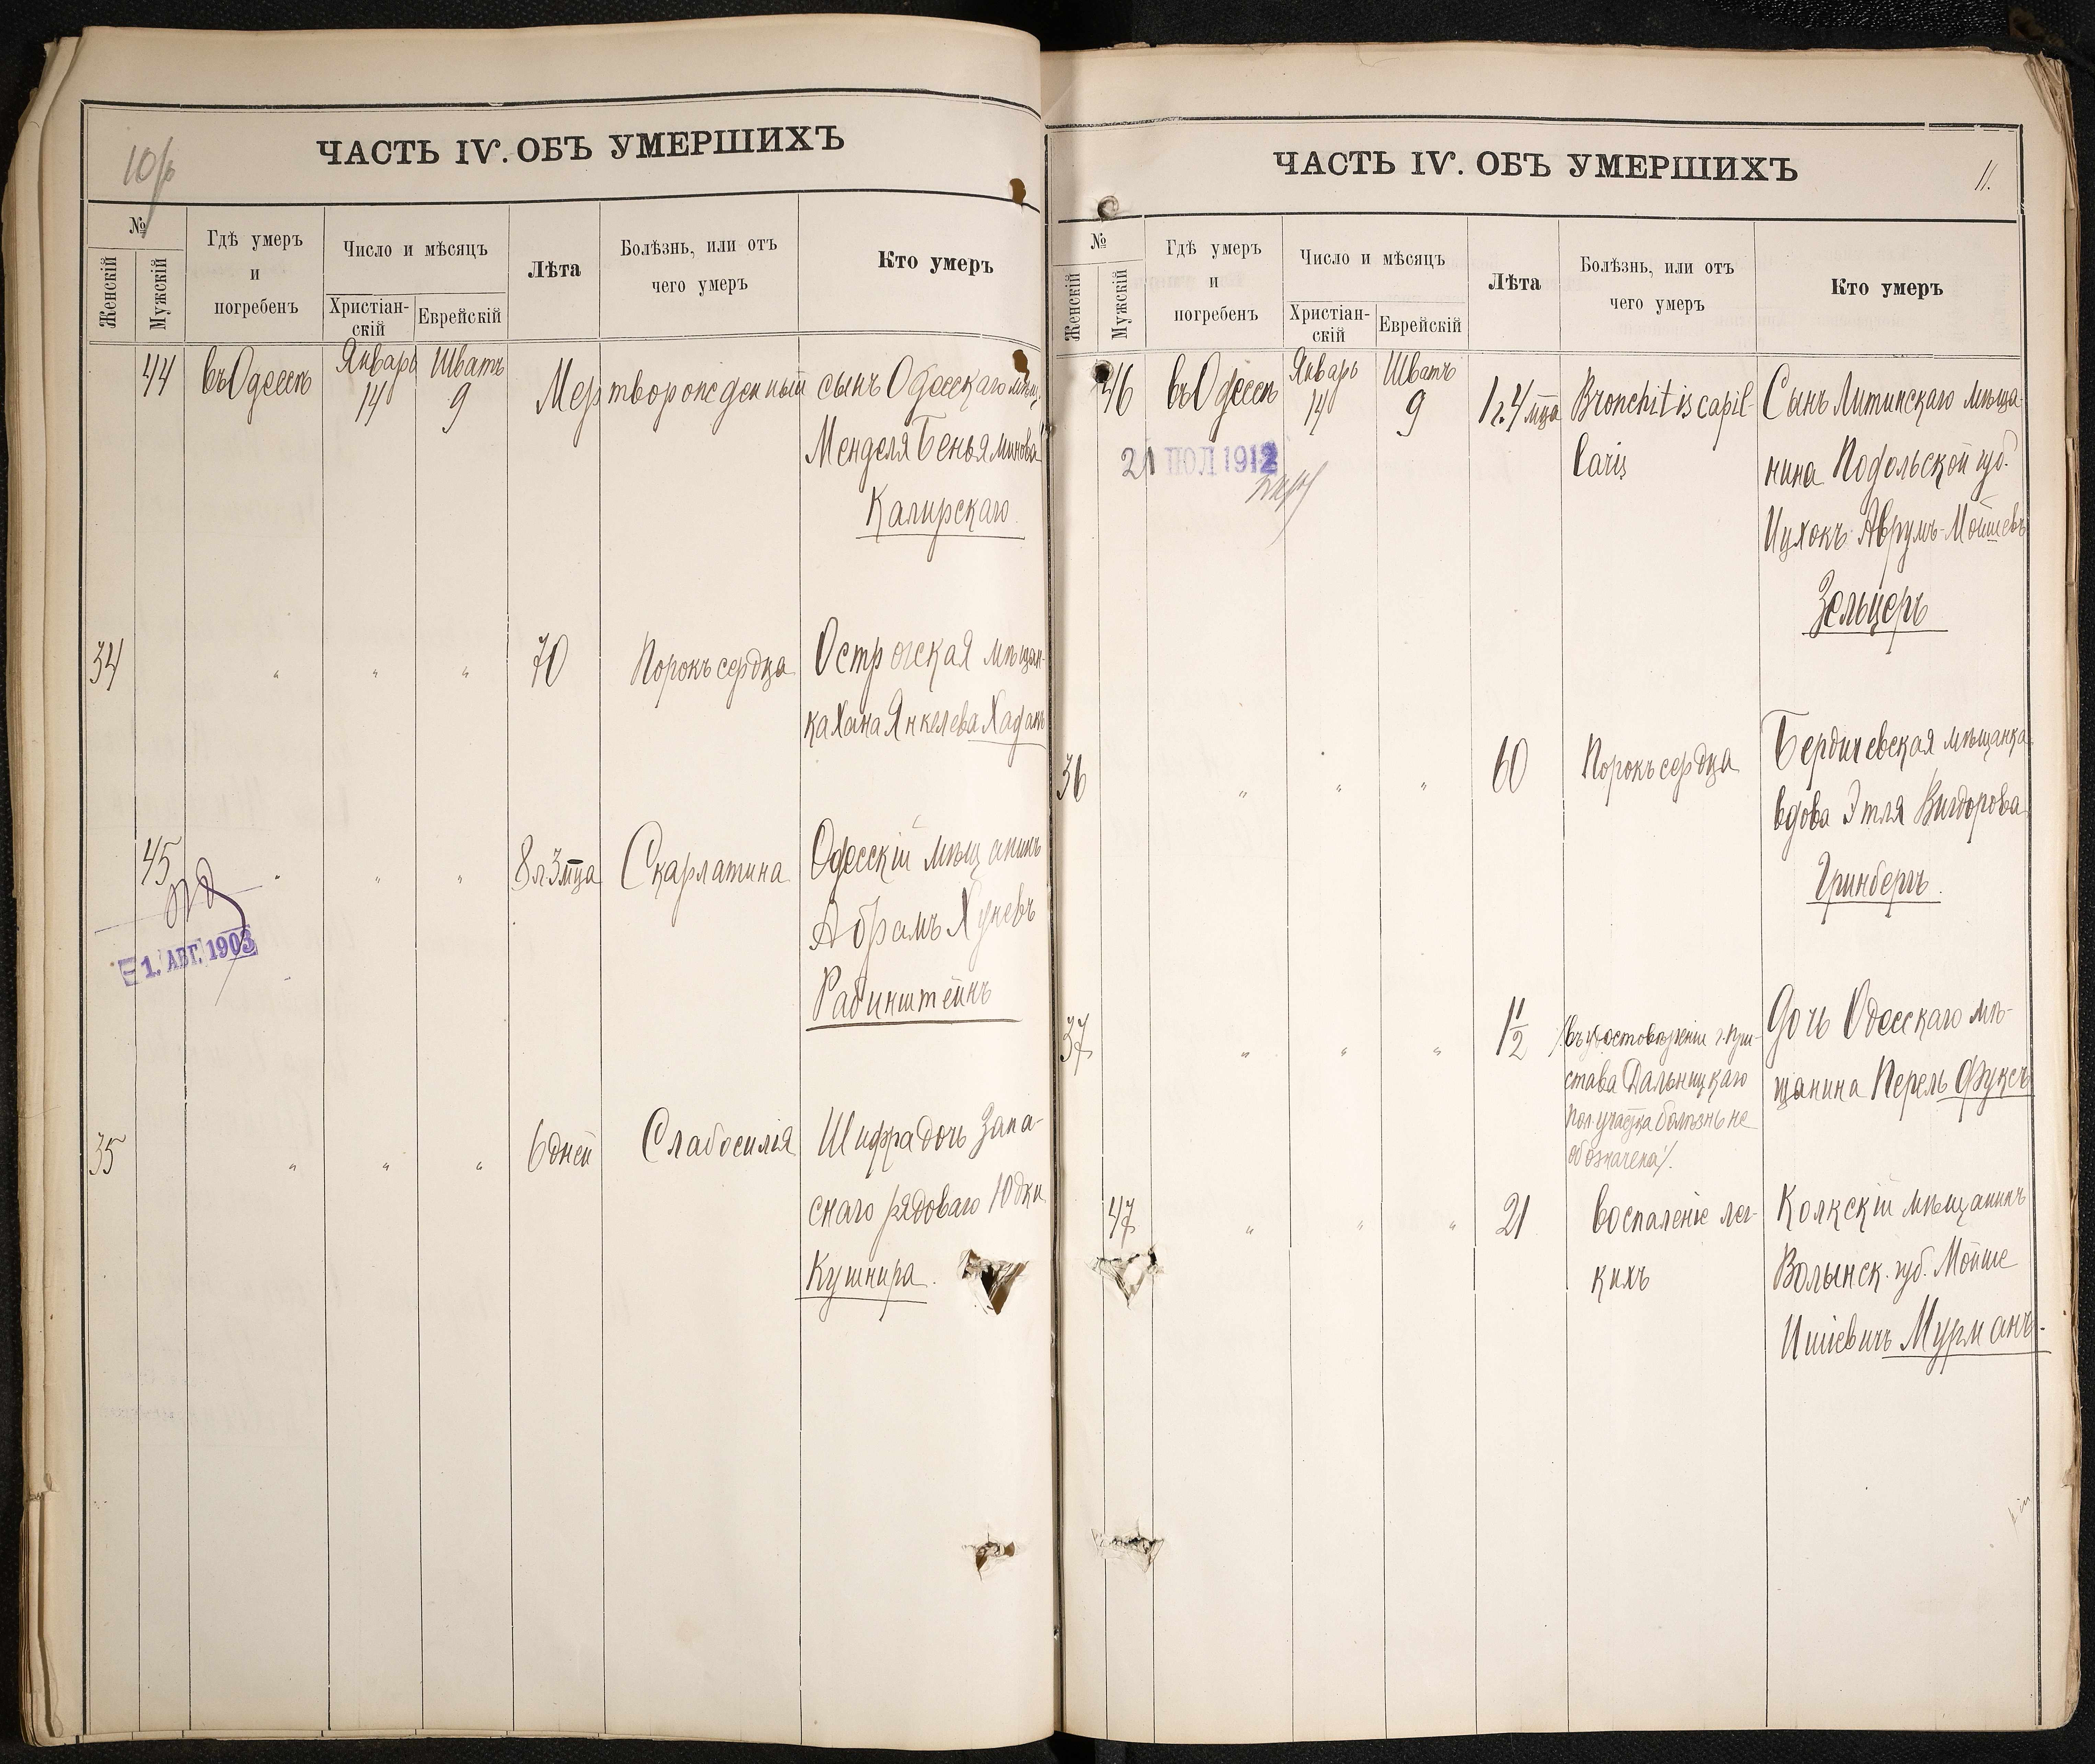 10
ЧАСТЬ IV. ОБЪ УМЕРШИХЪ
№
Женскій
Мужскій
Гдѣ умеръ
и
погребенъ
Число и мѣсяцъ
Христіан-
скій
Еврейскій
Лѣта
Болѣзнь, или отъ
чего умеръ
Кто умеръ
44 въ Одессѣ Январь 14 Шватъ 9 Мертворожденный сынъ Одесскаго мѣщ.
Менделя Беньяминова
Калирскаго
34 " " " 70 Порокъ сердца Острогская мѣщан-
ка Хана Янкелева Хадакъ
45 " " " 8 л 3 мца Скарлатина Одесскій мѣщанинъ
Абрамъ Хуневъ
Рабинштейнъ
1. АВГ. 1903
35 " " " 6 дней Слабосилія Шифра дочь Запа-
снаго рядоваго Юдки
Кушнира.
ЧАСТЬ IV. ОБЪ УМЕРШИХЪ
11.
№
Женскій
Мужскій
Гдѣ умеръ
и
погребенъ
Число и мѣсяцъ
Христіан-
скій
Еврейскій
Лѣта
Болѣзнь, или отъ
чего умеръ
Кто умеръ
46 въ Одессѣ Январь 14 Шватъ 9 1 г. 4 мца Bronchitis capil- Сынъ Литинскаго мѣща-
laris нина Подольской губ.
21 ІЮЛ 1912
Ицхокъ Аврумъ-Мойшевъ
Зельцеръ
36 " " " 60 Порокъ сердца Бердичевская мѣщанка
вдова Этля Вигдорова
Гринбергъ.
37 " " " 1 1/2 /:въ удостовѣреніи г. При- Дочь Одесскаго мѣ-
става Дальницкаго щанина Перель Фуксъ
пол. участка болѣзнь не
обозначена:/.
47 " " " 21 воспаленіе лег- Колкскій мѣщанинъ
кихъ Волынск. губ. Мойше
Ишіевичъ Мурманъ.